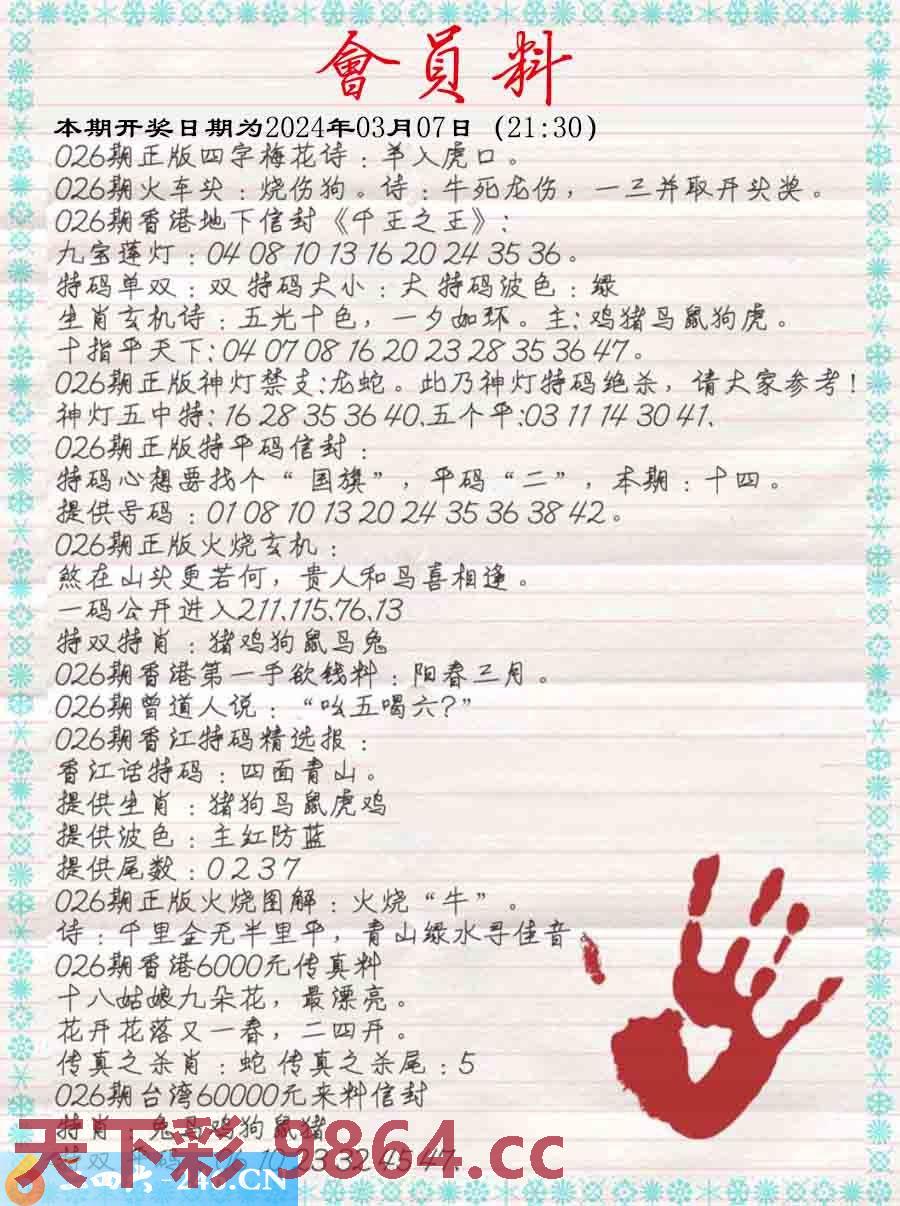 會員料
本期开奖日期为2024年03月07日 (21:30)
026期正版四字梅花诗：羊入虎口。
026期火车头：烧伤狗。诗：牛死龙伤，一三并取开头奖。
026期香港地下信封《千王之王》：
九宝莲灯：04 08 10 13 16 20 24 35 36。
特码单双：双 特码大小：大 特码波色：绿
生肖玄机诗：五光十色，一夕如环。主：鸡猪马鼠狗虎。
十指平天下：04 07 08 16 20 23 28 35 36 47。
026期正版神灯禁支:龙蛇。此乃神灯特码绝杀，请大家参考！
神灯五中特：16 28 35 36 40.五个平:03 11 14 30 41.
026期正版特平码信封：
特码心想要找个“国旗”，平码“二”，本期：十四。
提供号码：01 08 10 13 20 24 35 36 38 42。
026期正版火烧玄机：
煞在山头更若何，贵人和马喜相逢。
一码公开进入211.115.76.13
特双特肖：猪鸡狗鼠马兔
026期香港第一手欲钱料：阳春三月。
026期曾道人说：“吆五喝六？”
026期香江特码精选报：
香江话特码：四面青山。
提供生肖：猪狗马鼠虎鸡
提供波色：主红防蓝
提供尾数：0 2 3 7
026期正版火烧图解：火烧“牛”。
诗：千里金无半里平，青山绿水寻佳音。
026期香港6000元传真料
十八姑娘九朵花，最漂亮。
花开花落又一春，二四开。
传真之杀肖：蛇 传真之杀尾：5
026期台湾60000元来料信封
特肖：兔马鸡狗鼠猪
10 23 32 45 47.
天下彩 9864.cc
-246.CN